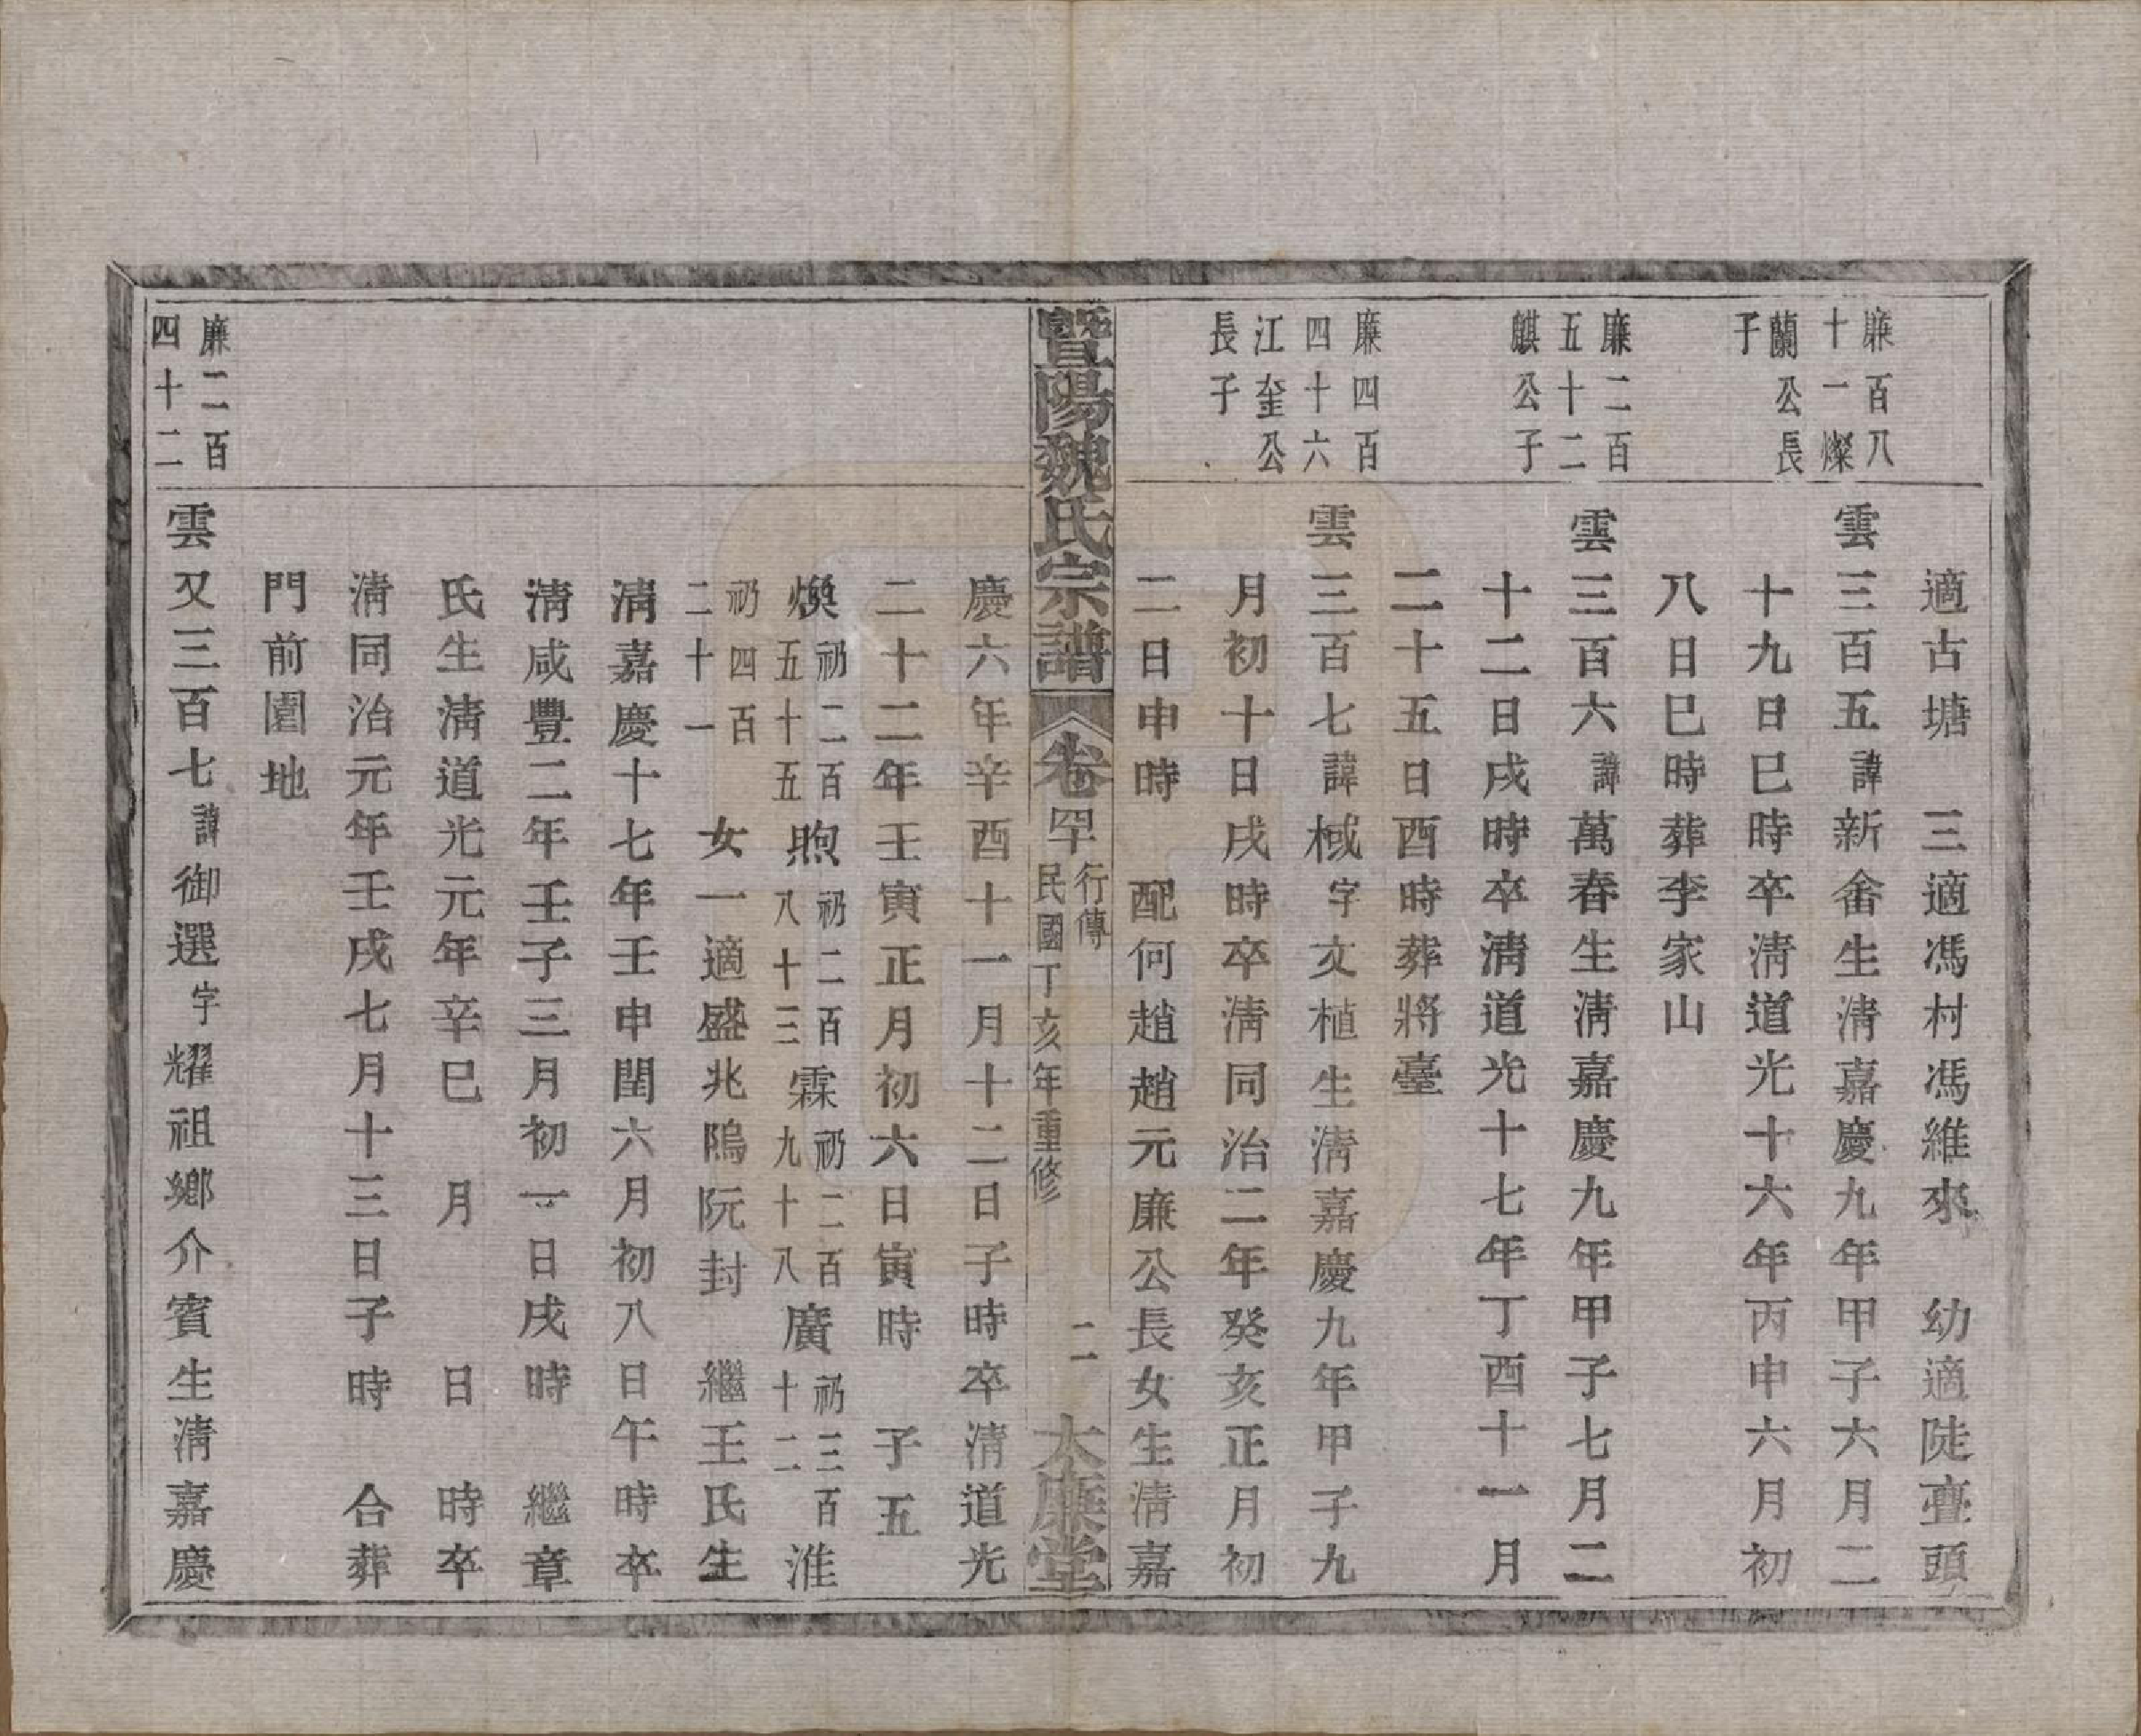 適古塘　三適馮村馮維來　幼適陡亹頭
廉百八
十一燦
蘭公長
子
雲三百五諱新畬生清嘉慶九年甲子六月二
十九日巳時卒清道光十六年丙申六月初
八日巳時葬李家山
廉二百
五十二
麒公子
雲三百六諱萬春生清嘉慶九年甲子七月二
十二日戌時卒清道光十七年丁酉十一月
二十五日酉時葬將臺
廉四百
四十六
江奎公
長子
雲三百七諱棫字文植生清嘉慶九年甲子九
月初十日戌時卒清同治二年癸亥正月初
二日申時　配何趙趙元廉公長女生清嘉
暨陽魏氏宗譜
卷四十
行傳
民國丁亥年重修
二
大廉堂
慶六年辛酉十一月十二日子時卒清道光
二十二年壬寅正月初六日寅時　子五
煥礽二百五十五煦礽二百八十三霖礽二百九十八廣礽三百十二淮
礽四百二十一　女一適盛兆隝阮封　繼王氏生
清嘉慶十七年壬申閏六月初八日午時卒
清咸豐二年壬子三月初一日戌時　繼章
氏生清道光元年辛巳　月　日　時卒
清同治元年壬戌七月十三日子時　合葬
門前園地
廉二百
四十二
雲又三百七諱御選字耀祖鄉介賓生清嘉慶